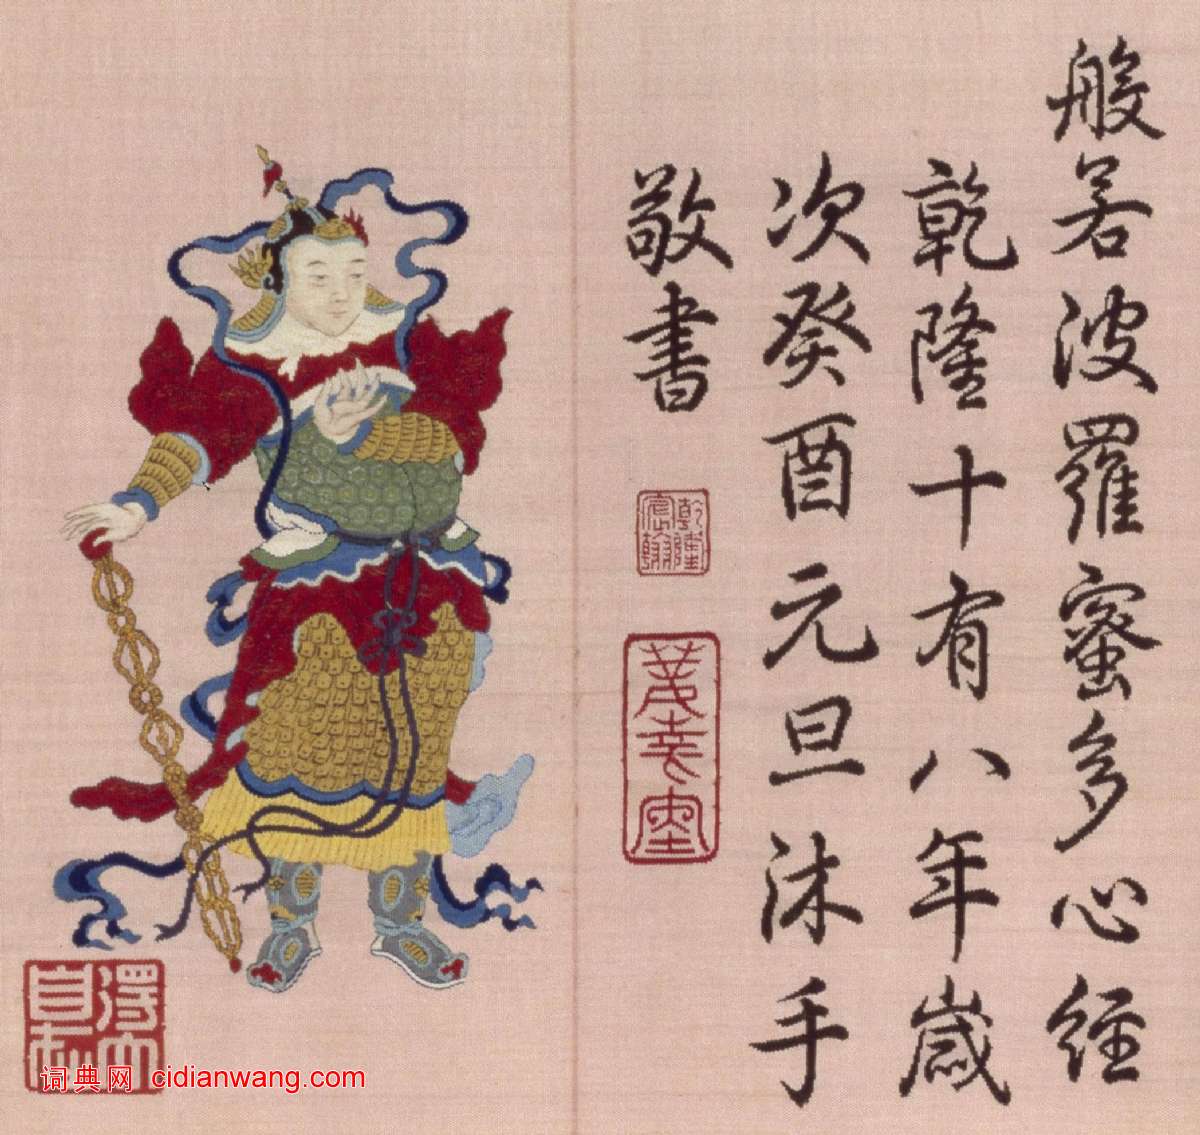 般若波羅蜜多心經
乾隆十有八年歲
次癸酉元旦沐手
敬書
乾隆
宸翰
得大
自在
词典网 cidianwang.com